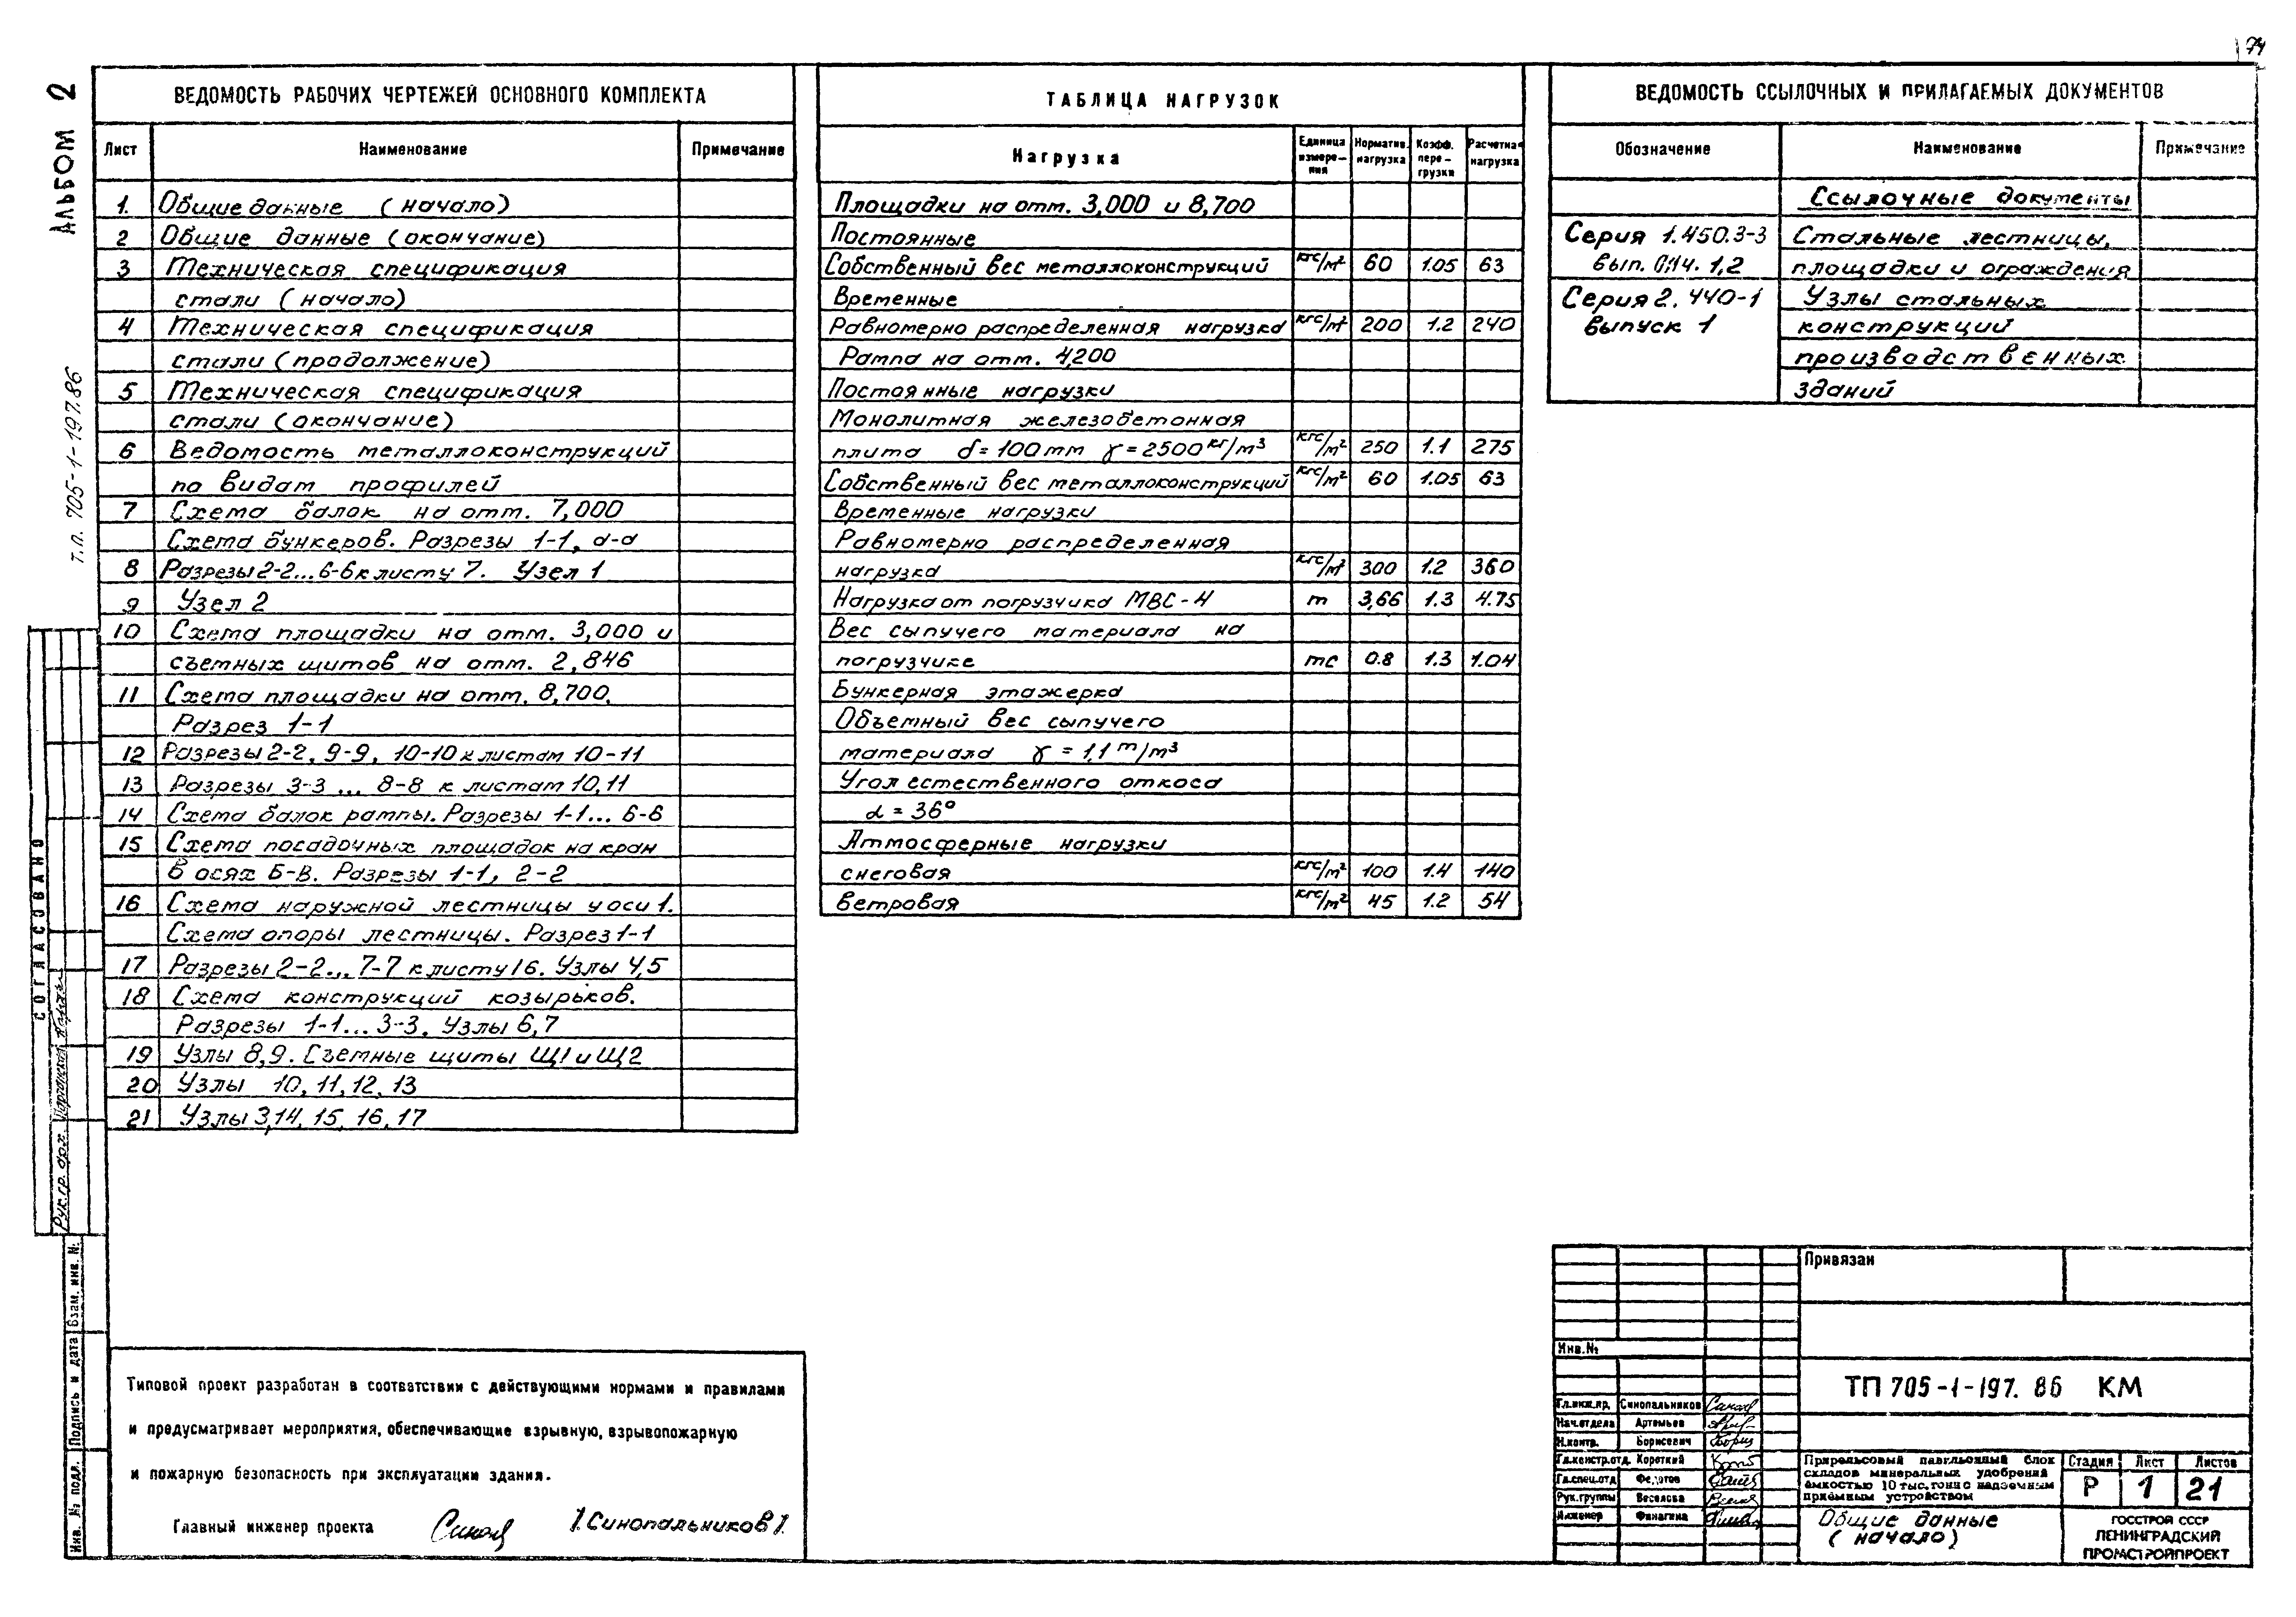 74
Альбом 2
т.п. 705-1-197.86
ВЕДОМОСТЬ РАБОЧИХ ЧЕРТЕЖЕЙ ОСНОВНОГО КОМПЛЕКТА
Лист Наименование Примечание
1. Общие данные (начало)
2 Общие данные (окончание)
3 Техническая спецификация
стали (начало)
4 Техническая спецификация
стали (продолжение)
5 Техническая спецификация
стали (окончание)
6 Ведомость металлоконструкций
по видам профилей
7 Схема балок на отм. 7,000
Схема бункеров. Разрезы 1-1, а-а
8 Разрезы 2-2...6-6 к листу 7. Узел 1
9 Узел 2
10 Схема площадки на отм. 3,000 и
съемных щитов на отм. 2,846
11 Схема площадки на отм. 8,700.
Разрез 1-1
12 Разрезы 2-2, 9-9, 10-10 к листам 10-11
13 Разрезы 3-3 ... 8-8 к листам 10,11
14 Схема балок рампы. Разрезы 1-1... 6-6
15 Схема посадочных площадок на кран
в осях Б-В. Разрезы 1-1, 2-2
16 Схема наружной лестницы у оси 1.
Схема опоры лестницы. Разрез 1-1
17 Разрезы 2-2... 7-7 к листу 16. Узлы 4,5
18 Схема конструкций козырьков.
Разрезы 1-1... 3-3. Узлы 6,7
19 Узлы 8,9. Съемные щиты Щ1 и Щ2
20 Узлы 10, 11, 12, 13
21 Узлы 3,14, 15, 16, 17
ТАБЛИЦА НАГРУЗОК
Нагрузка Единица измере-ния Норматив. нагрузка Коэфф. пере-грузки Расчетная нагрузка
Площадки на отм. 3,000 и 8,700
Постоянные
Собственный вес металлоконструкций кгс/м² 60 1.05 63
Временные
Равномерно распределенная нагрузка кгс/м² 200 1.2 240
Рампа на отм. 4,200
Постоянные нагрузки
Монолитная железобетонная
плита d=100мм γ=2500 кг/м³ кгс/м² 250 1.1 275
Собственный вес металлоконструкций кгс/м² 60 1.05 63
Временные нагрузки
Равномерно распределенная
нагрузка кгс/м² 300 1.2 360
Нагрузка от погрузчика МВС-4 т 3,66 1.3 4.75
Вес сыпучего материала на
погрузчике тс 0.8 1.3 1.04
Бункерная этажерка
Объемный вес сыпучего
материала γ = 1,1 т/м³
Угол естественного откоса
α = 36°
Атмосферные нагрузки
снеговая кгс/м² 100 1.4 140
ветровая кгс/м² 45 1.2 54
ВЕДОМОСТЬ ССЫЛОЧНЫХ И ПРИЛАГАЕМЫХ ДОКУМЕНТОВ
Обозначение Наименование Примечание
Ссылочные документы
Серия 1.450.3-3 Стальные лестницы,
вып. 1,2 площадки и ограждения
Серия 2.440-1 Узлы стальных
выпуск 1 конструкций
производственных
зданий
СОГЛАСОВАНО
Рук.гр. арх.
Взам. инв. №
Подпись и дата
Инв. № подл.
Типовой проект разработан в соответствии с действующими нормами и правилами
и предусматривает мероприятия, обеспечивающие взрывную, взрывопожарную
и пожарную безопасность при эксплуатации здания.
Главный инженер проекта Синопальников
Привязан
Инв.№
ТП 705-1-197. 86 КМ
Гл.инж.пр. Синопальников
Нач.отдела Артемьев
Н.контр. Борисевич
Гл.констр.отд. Короткий
Гл.спец.отд Федотов
Рук.группы Веселова
Инженер Финагина
Прирельсовый павильонный блок
складов минеральных удобрений
емкостью 10 тыс.тонн с надземным
приёмным устройством
Стадия Лист Листов
Р 1 21
Общие данные
(начало)
ГОССТРОЙ СССР
ЛЕНИНГРАДСКИЙ
ПРОМСТРОЙПРОЕКТ